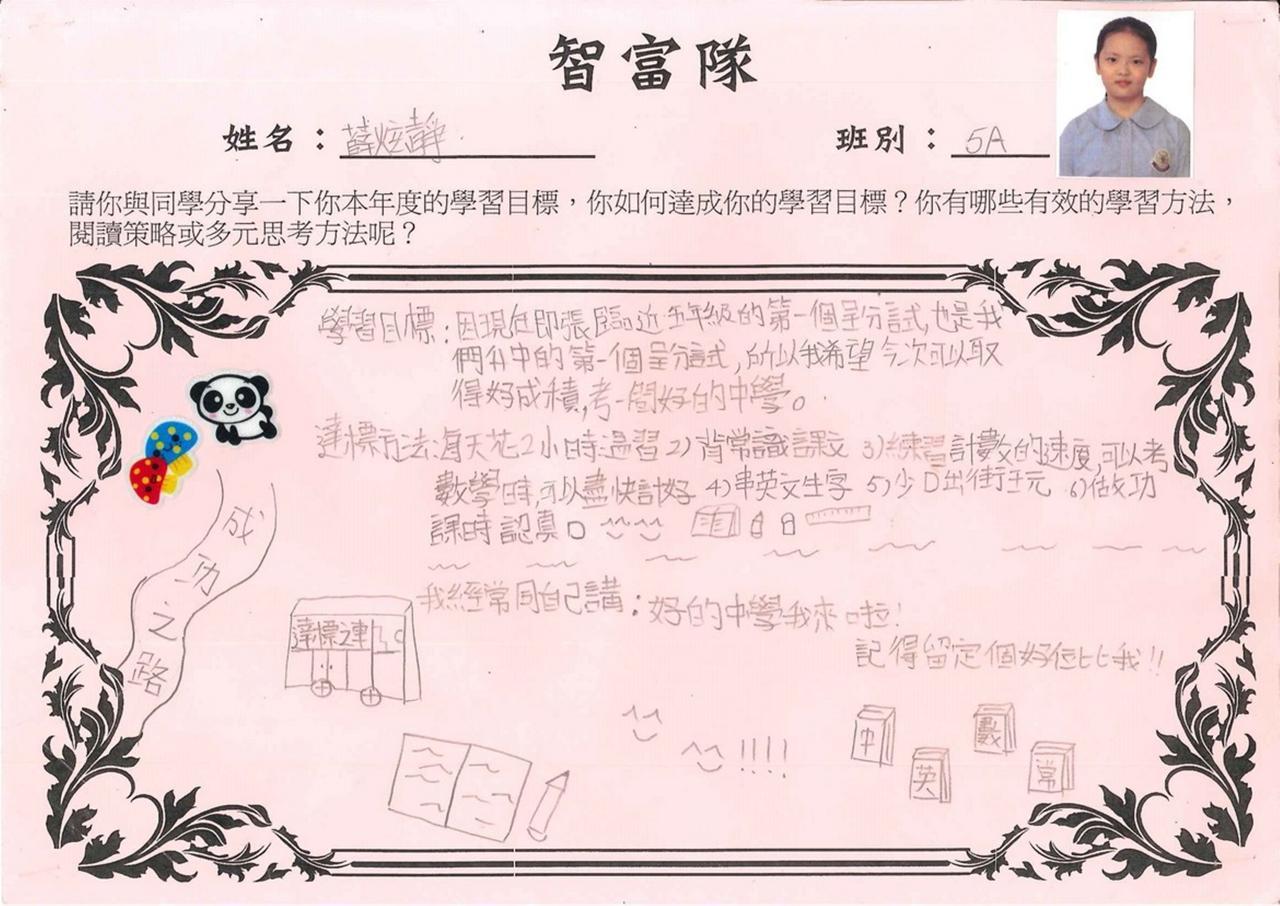 智富隊
姓名：薛炫靜
班別：5A
請你與同學分享一下你本年度的學習目標，你如何達成你的學習目標？你有哪些有效的學習方法，
閱讀策略或多元思考方法呢？
學習目標：因現在即張臨近五年級的第一個呈分試，也是我
們升中的第一個呈分試，所以我希望今次可以取
得好成積，考一間好的中學。
達標方法：每天花2小時溫習 2) 背常識課文 3)練習計數的速度，可以考
數學時，可以盡快計好 4)串英文生字 5)少D出街玩 6)做功
課時認真。
我經常同自己講：好的中學我來啦！
記得留定個好位比我!!
成功之路
達標之車
!!!!
中
英
數
常